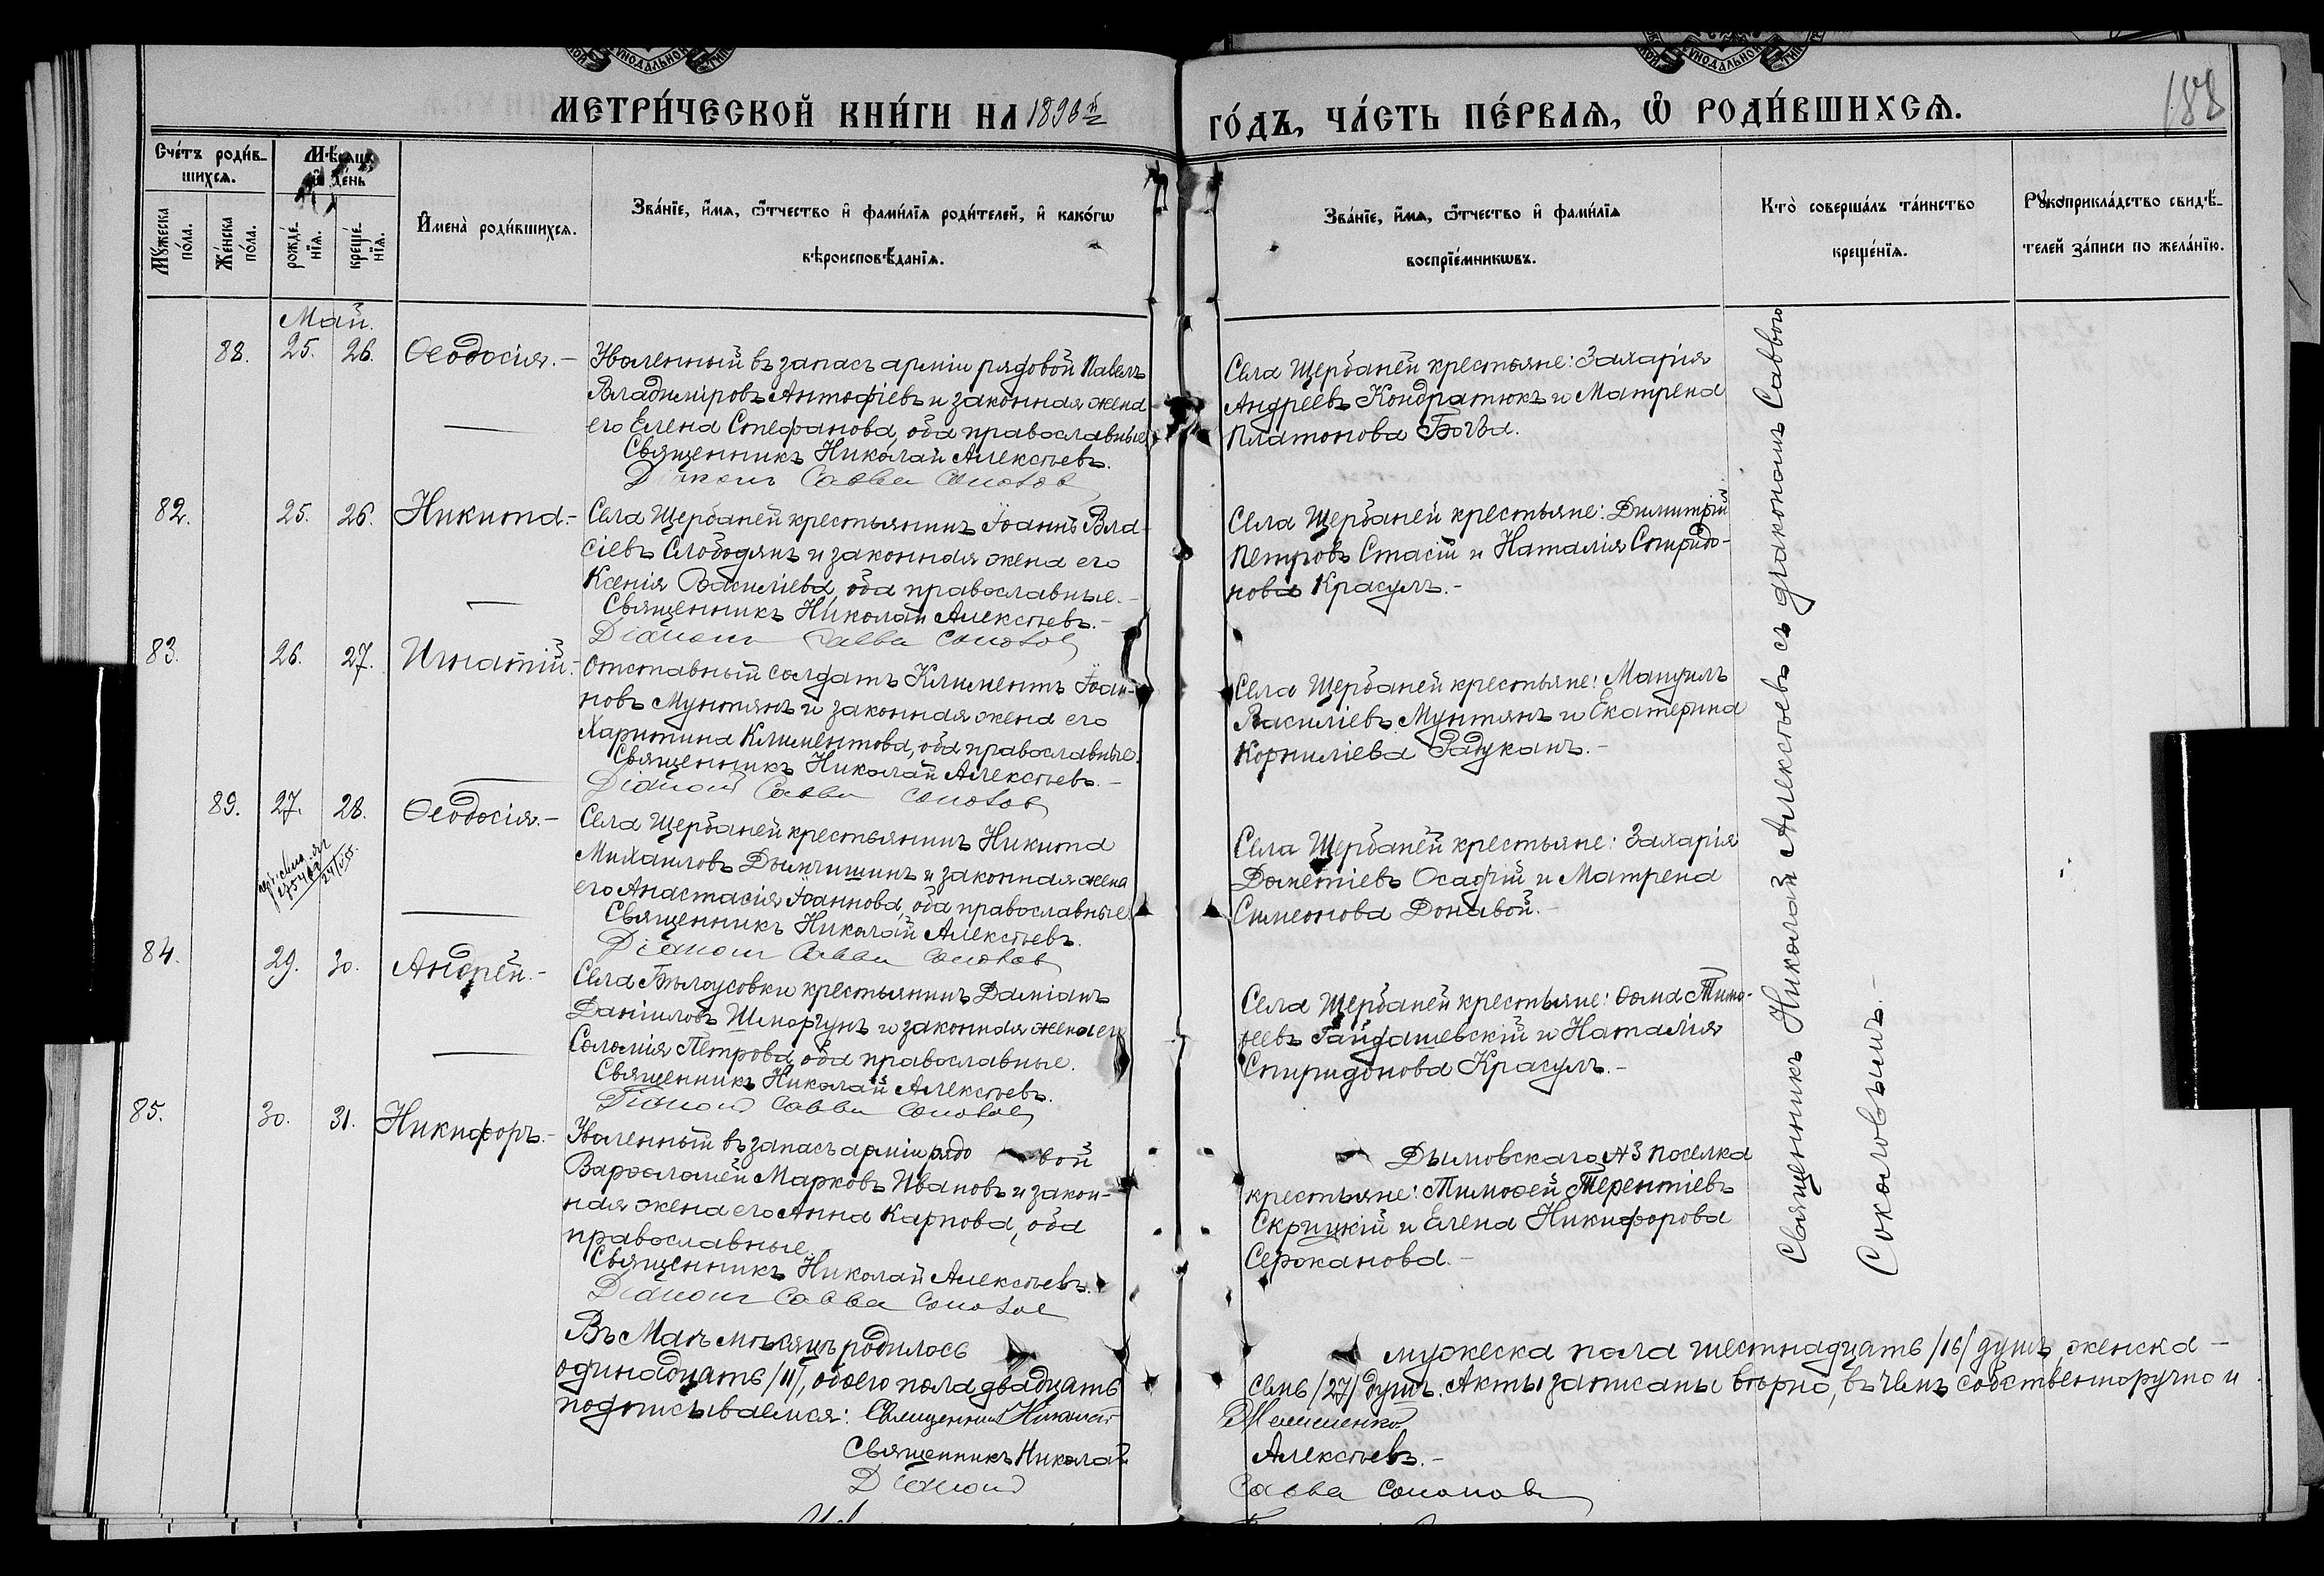 МЕТРИ́ЧЕСКОЙ КНИ́ГИ НА 1896 й
ГО́ДЪ, ЧА́СТЬ ПЕ́РВАЯ, Ѽ РОДИ́ВШИХСЯ.
188
Сче́тъ роди́в-
шихся.
Мѣсяцъ
и де́нь
Мꙋ́жеска
по́ла.
Же́нска
по́ла.
рожде́-
нїя.
креще́-
нїя.
Имена̀ роди́вшихся.
Зва́нїе, и́мя, ѻ҆́тчество и҆ фами́лїя роди́телей, и҆ како́гѡ
вѣроисповѣ́данїя.
Зва́нїе, и́мя, ѻ҆́тчество и҆ фами́лїя
воспрїе́мникѡвъ.
Кто̀ соверша́лъ та́инство
креще́нїя.
Рꙋкоприкла́дство свидѣ́-
телей за́писи по жела́нїю.
Май.
88. 25. 26. Ѳеодосія.-
Уволенный въ запасъ арміи рядовой Павелъ
Владиміровъ Антофіевъ и законная жена
его Елена Стефанова, оба православные
Священникъ Николай Алексѣевъ.
Діаконъ Савва Соколов
Села Щербаней крестьяне: Захарія
Андреевъ Кондратюкъ и Матрена
Платонова Богва.
82. 25. 26. Никита.-
Села Щербаней крестьянинъ Іоаннъ Вла-
сіевъ Слободянъ и законная жена его
Ксенія Василіева, оба православные.-
Священникъ Николай Алексѣевъ.-
Діаконъ Савва Соколов
Села Щербаней крестьяне: Димитрій
Петровъ Стасій и Наталія Спиридо-
нова Красулъ.-
83. 26. 27. Игнатій.-
Отставный солдатъ Климентъ Іоан-
новъ Мунтянъ и законная жена его
Харитина Климентова, оба православные.
Священникъ Николай Алексѣевъ.-
Діаконъ Савва Соколов
Села Щербаней крестьяне: Мануилъ
Василіевъ Мунтянъ и Екатерина
Корниліева Радуканъ.-
89. 27. 28. Ѳеодосія.-
24/V 55.
Села Щербаней крестьянинъ Никита
Михаиловъ Дымчишинъ и законная жена
его Анастасія Іоаннова, оба православные
Священникъ Николай Алексѣевъ.
Діаконъ Савва Соколов
Села Щербаней крестьяне: Захарія
Дометіевъ Осафій и Матрена
Симеонова Донавой.-
84. 29. 30. Андрей.-
Села Бѣлоусовки крестьянинъ Даміанъ
Даніиловъ Шморгунъ и законная жена его
Соломія Петрова, оба православные.
Священникъ Николай Алексѣевъ.
Діаконъ Савва Соколов
Села Щербаней крестьяне: Ѳома Тимо-
ѳеевъ Гайдашевскій и Наталія
Спиридонова Красулъ.-
85. 30. 31. Никифоръ.-
Уволенный въ запасъ арміи рядо вой
Варѳоломей Марковъ Ивановъ и закон-
ная жена его Анна Карпова, оба
православные.
Священникъ Николай Алексѣевъ.
Діаконъ Савва Соколов
Дымовскаго №3 поселка
крестьяне: Тимоѳей Терентіевъ
Скрицкій и Елена Никифорова
Сержанова.-
Священникъ Николай Алексѣевъ съ діакономъ Саввою
Соколовымъ.-
Въ Маѣ мѣсяцѣ родилось мужеска пола шестнадцать /16/ душъ, женска -
одинадцать /11/, обоего пола двадцать семь /27/ душъ. Акты записаны вѣрно, въ чемъ собственноручно и
подписываемся: Священникъ Николай
Священникъ Николай Алексѣевъ.-
Діаконъ Савва Соколовъ